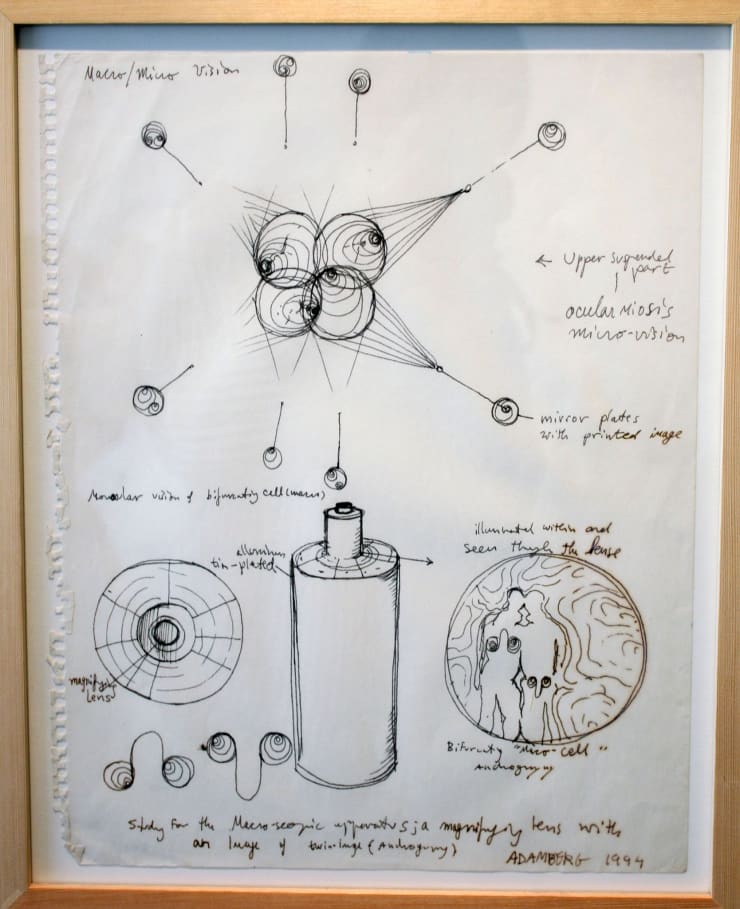 Macro/Micro Vision
← Upper suspended
part
ocular Miosis
micro-vision
mirror plates
with printed image
vision of bifurcating cell (macro)
alluminum
tin-plated
illuminated within and
seen through the lense
magnifying
lens
Bifurcating "Micro-cell"
Androgyny
Study for the Macro-scopic apparatus; a magnifying lens with
an Image of twin-image (Androgyny)
ADAMBERG 1994